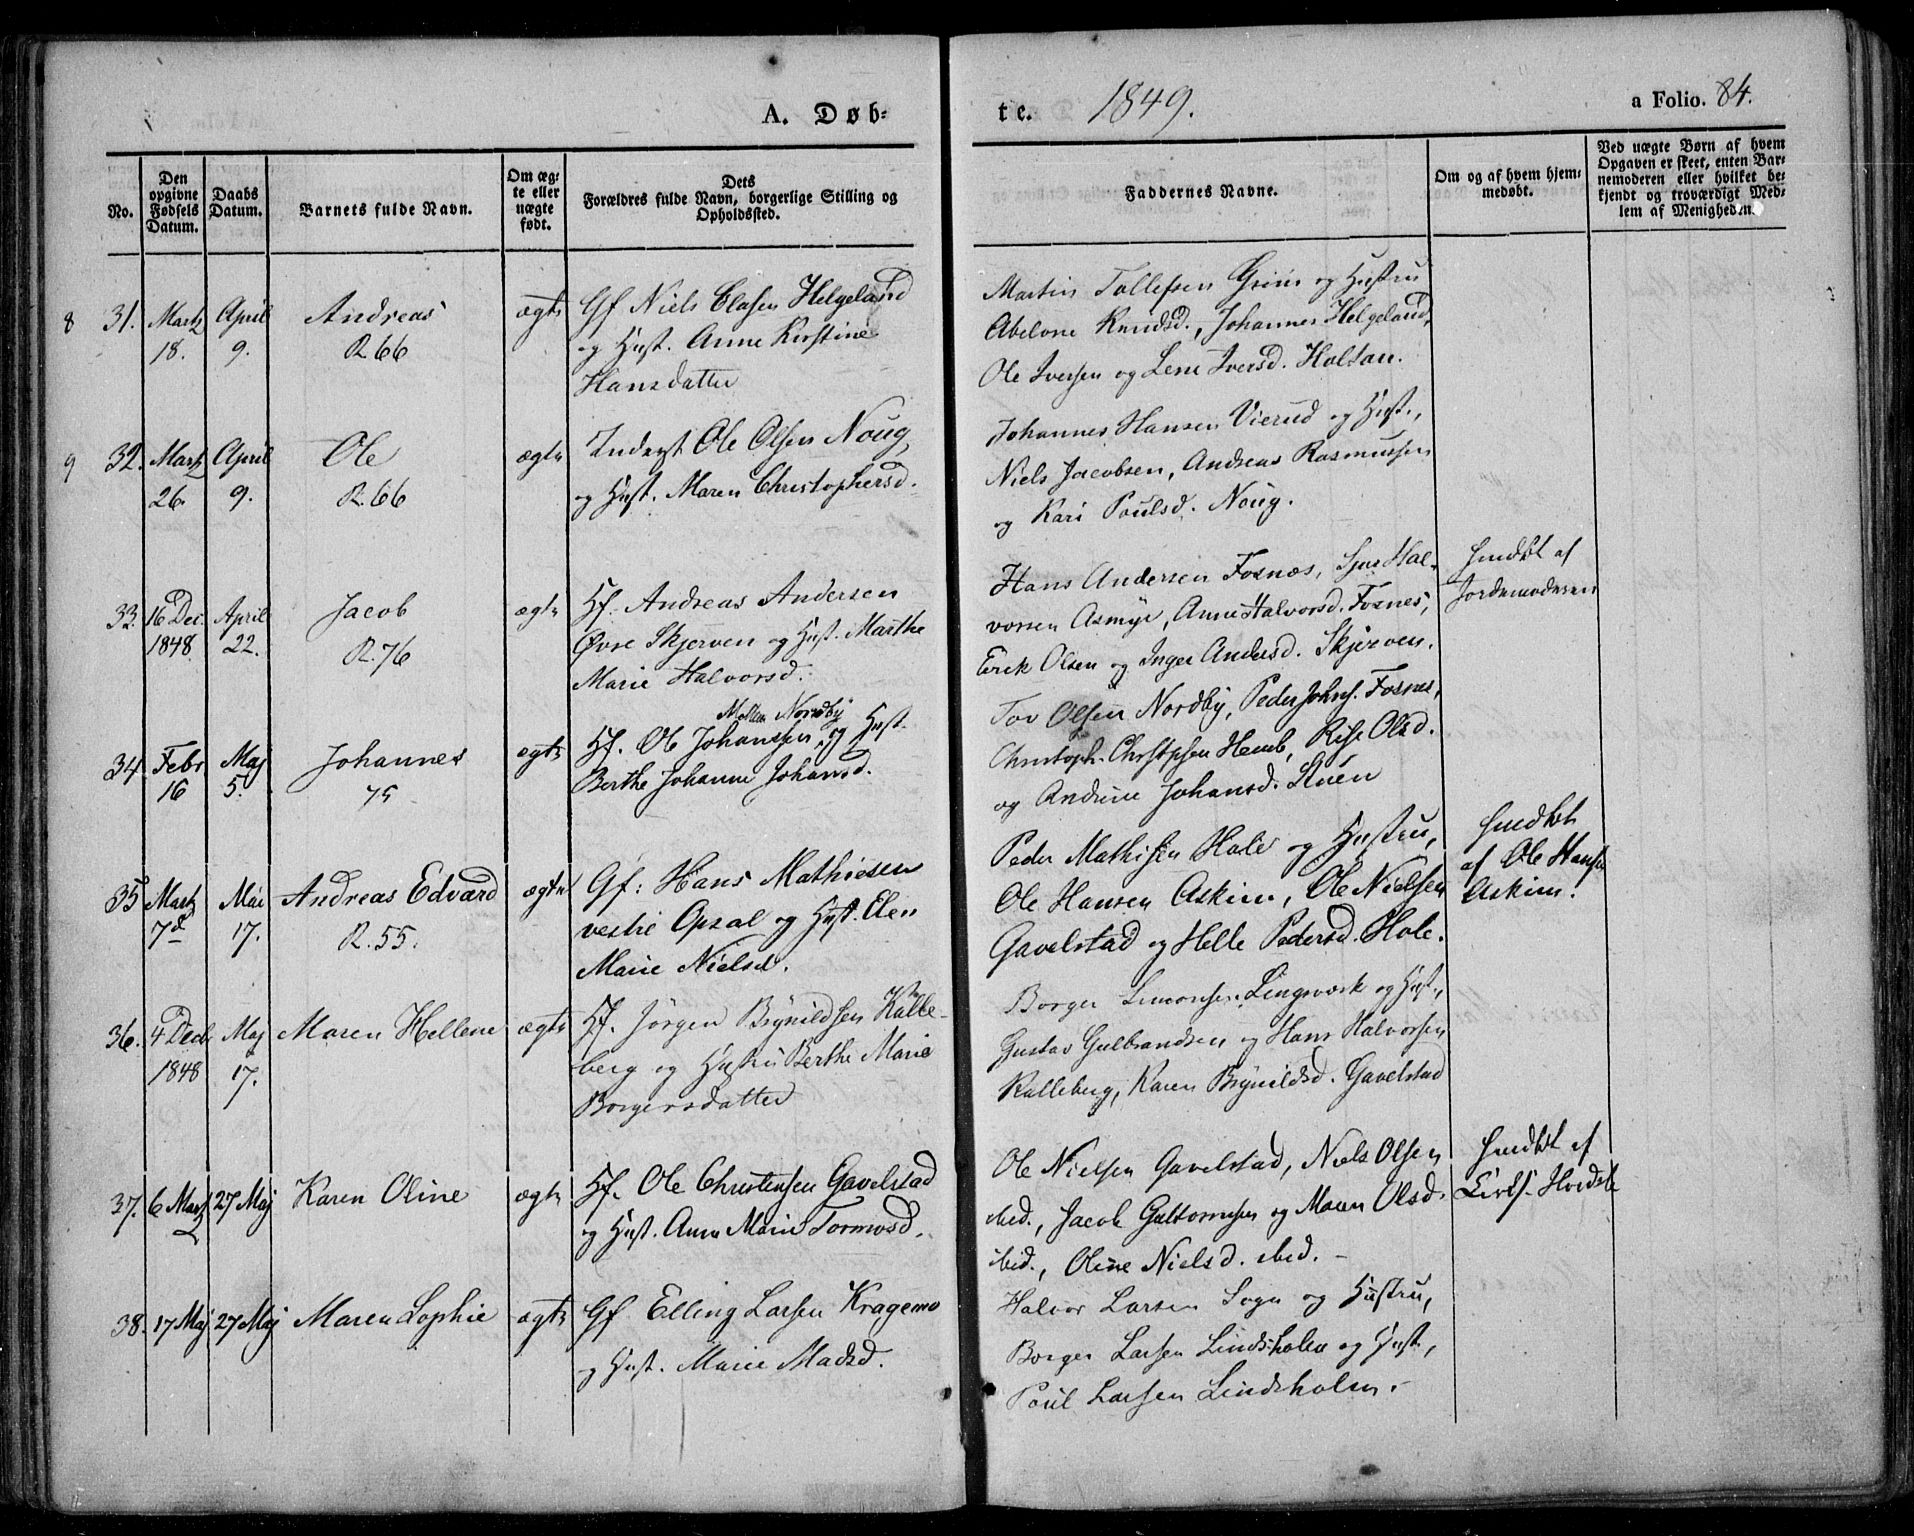 A. Døb-
te.
1849.
a Folio. 84.
No.
Den opgivne Fødsels Datum.
Daabs Datum.
Barnets fulde Navn.
Om ægte eller uægte født.
Dets Forældres fulde Navn, borgerlige Stilling og Opholdssted.
Faddernes Navne.
Om og af hvem hjemmedøbt.
Ved uægte Børn af hvem Opgaven er skeet, enten Barnemoderen eller hvilket bekjendt og troværdigt Medlem af Menigheden.
8 31. Martz 18. April 9. Andreas R. 66 ægte
Gf Niels Olasen Helgeland
og Hust. Anne Kirstine
Hansdatter
Martin Tollefsen Grim og Hustru
Abelone Knudsd., Johannes Helgeland,
Ole Iversen og Lene Iversd. Holtan.
9 32. Martz 26. April 9. Ole R. 66 ægte
Inderst Ole Olsen Noug
og Hust. Maren Christophersd.
Johannes Hansen Vierud og Hust.,
Niels Jacobsen, Andreas Rasmussen
og Kari Poulsd. Noug.
33. 16 Dec. 1848 April 22. Jacob R. 76 ægte
Hf. Andreas Andersen
Øvre Skjerven og Hust. Marthe
Marie Halvorsd.
Hans Andersen Fosnæs, Halvorsen Asmyr, Anne Halvorsd. Fosnes,
Erik Olsen og Inger Andersd. Skjerven.
hmdøbt af
Jordemoderen
34. Febr 16 Maj 5. Johannes 75 ægte
Mellem Nordby
Hf. Ole Johansen og Hust.
Berthe Johanne Johansd.
Tov Olsen Nordby, Peder Johns. Fosnes,
Christoph. Christophsen Hemb, Olsd.
og Andrine Johansd. Stuen
35 Martz 7d Mai 17. Andreas Edvard R. 55. ægte
Gf: Hans Mathiesen
vestre Opsal og Hust. Elen
Marie Nielsd.
Peder Mathisen Hole og Hustru,
Ole Hansen Askim, Ole Nielsen
Gavelstad og Helle Pedersd. Hole.
hmdøbt
af Ole Hansen
Askim.
36. 4 Decb. 1848 Maj 17. Maren Hellene ægte
Hf. Jørgen Brynildsen Kalleberg og Hustru Berthe Marie
Borgersdatter
Borger Simonsen Lingsværk og Hust.,
Gustav Gulbrandsen og Hans Halvorsen
Kalleberg, Karen Brynildsd. Gavelstad
37. 6 Martz 27 Maj Karen Oline ægte
Hf. Ole Christensen Gavelstad
og Hust. Anne Marie Tormosd.
Ole Nielsen Gavelstad, Niels Olsen
ibid., Jacob Guttormsen og Maren Olsd.
ibid., Oline Nielsd. ibid. -
hmdøbt af
38. 17 Maj 27 Maj Maren Sophie ægte
Gf Elling Larsen Kragemo
og Hust. Marie Madsd.
Halvor Larsen Sogn og Hustru,
Borger Larsen Lindsholm og Hust.,
Poul Larsen Lindsholm.-